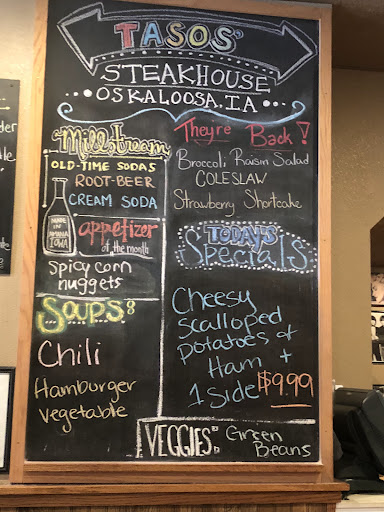 TASOS'
STEAKHOUSE
OSKALOOSA, IA
Millstream
OLD-TIME SODAS
ROOT-BEER
CREAM SODA
MADE IN AMANA IOWA
appetizer
of the month
Spicy corn
nuggets
SOUPS:
Chili
Hamburger
Vegetable
They're Back!
Broccoli Raisin Salad
COLESLAW
Strawberry Shortcake
TODAY'S
Specials
Cheesy
scalloped
potatoes &
Ham +
1 side $9.99
VEGGIES: Green
Beans